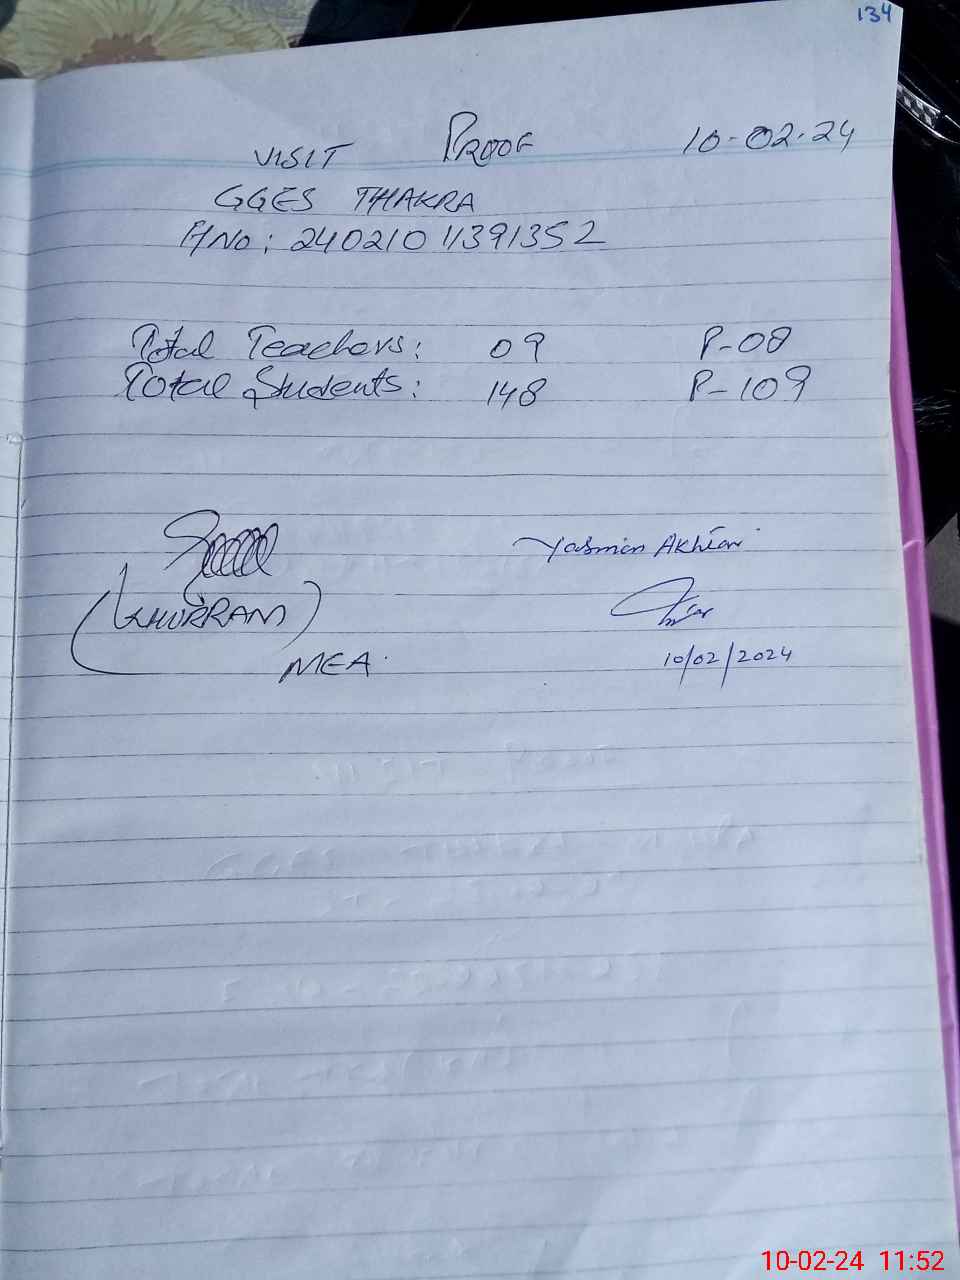 134
VISIT PROOF 10-02-24
GGES THAKRA
A No: 24021011391352
Total Teachers: 09 P-08
Total Students: 148 P-109
Yasmin Akhtar
(KHURRAM)
MEA.
10/02/2024
10-02-24 11:52